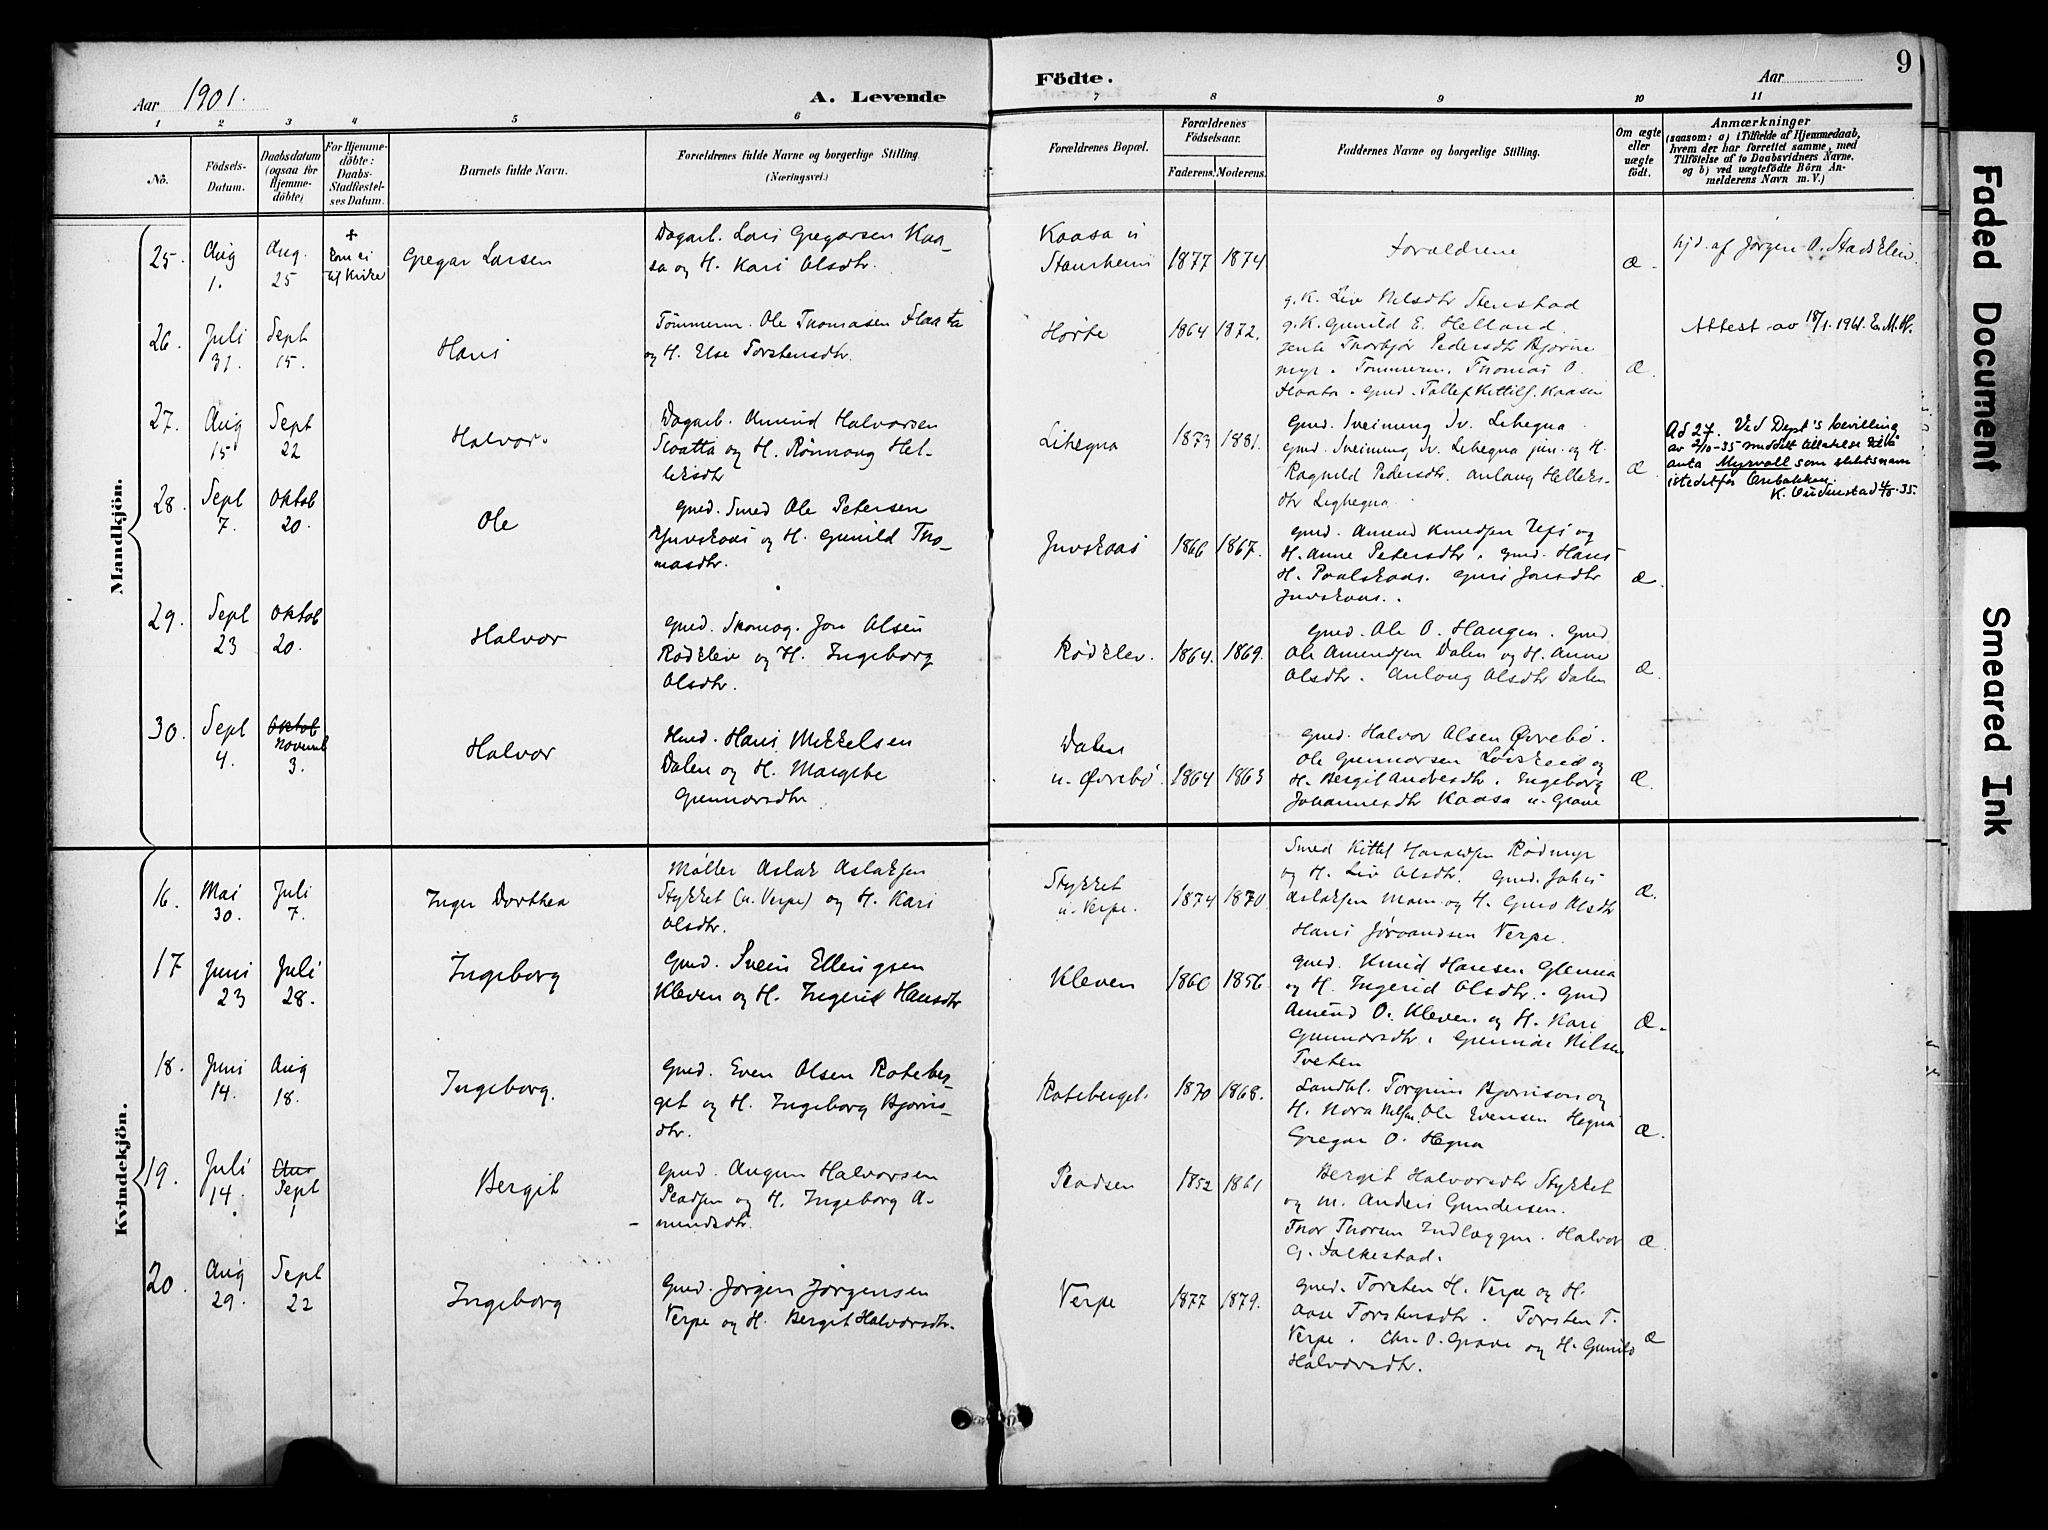 Aar 1901.
A. Levende
Födte.
Aar
9
1 2 3 4 5 6 7 8 9 10 11
No.
Födsels-
Datum.
Daabsdatum
(ogsaa for
Hjemme-
döbte)
For Hjemme-
döbte:
Daabs-
Stadfæstel-
ses Datum.
Barnets fulde Navn.
Forældrenes fulde Navne og borgerlige Stilling.
(Næringsvei.)
Forældrenes Bopæl.
Forældrenes
Födselsaar.
Faderens. Moderens.
Faddernes Navne og borgerlige Stilling.
Om ægte
eller
uægte
födt.
Anmærkninger
(saasom: a) i Tilfælde af Hjemmedaab,
hvem der har forrettet samme, med
Tilföielse af to Daabsvidners Navne.
og b) ved uægtefödte Börn An-
melderens Navn m. V.)
Mandkjön.
25.
Aug
1.
Aug.
25
+
Kom ei
til Kirke
Gregar Larsen
Dagarb. Lars Gregarsen Kaa-
sa og H. Kari Olsdtr.
Kaasa u
Staurheim
1877 1874
Forældrene
Æ.
hjd. af Jørgen O. Stadskleiv.
26.
Juli
31.
Sept
15.
Hans
Tømmerm. Ole Thomasen Flaata
og H. Else Torstensdtr.
Hørte
1864 1872.
g. K. Liv Nilsdtr Stenstad
g. K. Gunild E. Helland.
Jente Thorbjør Pedersdtr Bjørne
myr. Tømmerm. Thomas O.
Flaata. Gmd. Tallef Kittilf. Kaasen
Æ.
Attest av 18/1. 1961. E. M. H.
27.
Aug
15
Sept
22
Halvor.
Dagarb. Amund Halvorsen
Sloatta og H. Rønnoug Hel-
leksdtr
Lihegna
1873 1881.
Gmd. Sveinung Sv. Lihegna
gmd. Sveinung Sv. Lihegna jun. og H.
Ragnild Pedersdtr. Anlaug Helleks-
dtr Lighegna.
Æ.
Ad 27. Ved Dept's bevilling
av 2/10-35 meddelt tillatelse til å
anta Myrvoll som slektsnavn
istedetfor
K. Audenstad 4/10. 35.
28.
Sept
7.
Oktob
20.
Ole
gmd. Smed Ole Petersen
Juvskaas og H. Gunild Tho-
masdtr.
Juvskaas
1866 1867.
gmd. Amund Knudsen Ufs og
H. Anne Petersdtr. gmd. Hans
H. Paalskaas. Guri Jonsdtr
Juvskaas.
Æ.
29.
Sept
23
Oktob
20.
Halvor
gmd. Skomag. Jon Olsen
Rødklev og H. Ingeborg
Olsdtr.
Rødklev.
1864. 1869.
Gmd. Ole O. Haugen. Gmd
Ole Amundsen Dalen og H. Anne
Olsdtr. Anlaug Olsdtr Dalen
Æ.
30.
Sept
4.
Oktob
Novemb
3.
Halvor
Hmd. Hans Mikkelsen
Dalen og H. Margete
Gunnarsdtr
Dalen
u. Øvrebø
1864 1863
gmd. Halvor Olsen Øvrebø.
Ole Gunnarsen og
H. Bergit Andersdtr. Ingeborg
Johannesdtr Kaasa u. Grave
Æ.
Kvindekjön.
16.
Mai
30.
Juli
7.
Inger Dorthea
Møller Aslak Aslaksen
Stykket (u. Verpe) og H. Kari
Olsdtr.
Stykket
u. Verpe.
1874 1870.
Smed Kittel Haraldsen Rødmyr
og H. Liv Olsdtr. Gmd. Johs
Aslaksen Moen og H. Guro Olsdtr
Hans Jørandsen Verpe.
Æ.
17
Juni
23
Juli
28.
Ingeborg
Gmd. Svein Ellingsen
Kleven og H. Ingerid Hansdtr
Kleven
1860 1856.
gmd. Knud Hansen Glenna
og H. Ingerid Olsdtr. Gmd
Amund O. Kleven og H. Kari
Gunnarsdtr. Nilsen
Tveten
Æ.
18.
Juni
14.
Aug
18.
Ingeborg.
Gmd. Even Olsen Roteber-
get og H. Ingeborg Bjørns-
dtr.
Roteberget.
1870 1868.
Landhl. Torgrim Bjørnson og
H. Nora Nilsen, Ole Evensen Hegna
Gregar O. Hegna
Æ.
19.
Juli
14.
Aug
Sept
1
Bergit
gmd. Augun Halvorsen
Pladsen og H. Ingeborg A-
mundsdtr.
Pladsen
1852 1861
Bergit Halvorsdtr Stykket
og m. Anders Gundersen.
Thor Thorsen Indlæggen. Halvor
G. Falkestad.
Æ.
20.
Aug
29.
Sept
22
Ingeborg
Gmd. Jørgen Jørgensen
Verpe og H. Bergit Halvorsdtr.
Verpe
1877 1879.
Gmd. Torsten H. Verpe og H.
Aase Torstensdtr. Torsten T.
Verpe. Chr. O. Grave og H. Gunild
Halvorsdtr.
Æ
Faded Document
Smeared Ink